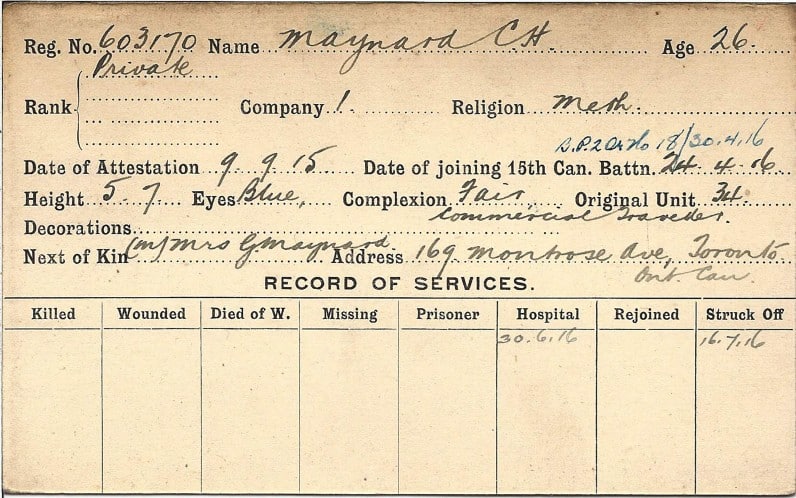 Reg. No. 603170 Name Maynard C H Age 26.
Private
Rank Company 1. Religion Meth.
18/30.4.16
Date of Attestation 9 9 15 Date of joining 15th Can. Battn. 24 4 16
Height 5 7 Eyes Blue, Complexion Fair, Original Unit 34.
Commercial Traveler.
Decorations
Next of Kin (M) Mrs G. Maynard. Address 169 Montrose Ave, Toronto
Ont. Can.
RECORD OF SERVICES.
Killed Wounded Died of W. Missing Prisoner Hospital Rejoined Struck Off
30.6.16 16.7.16